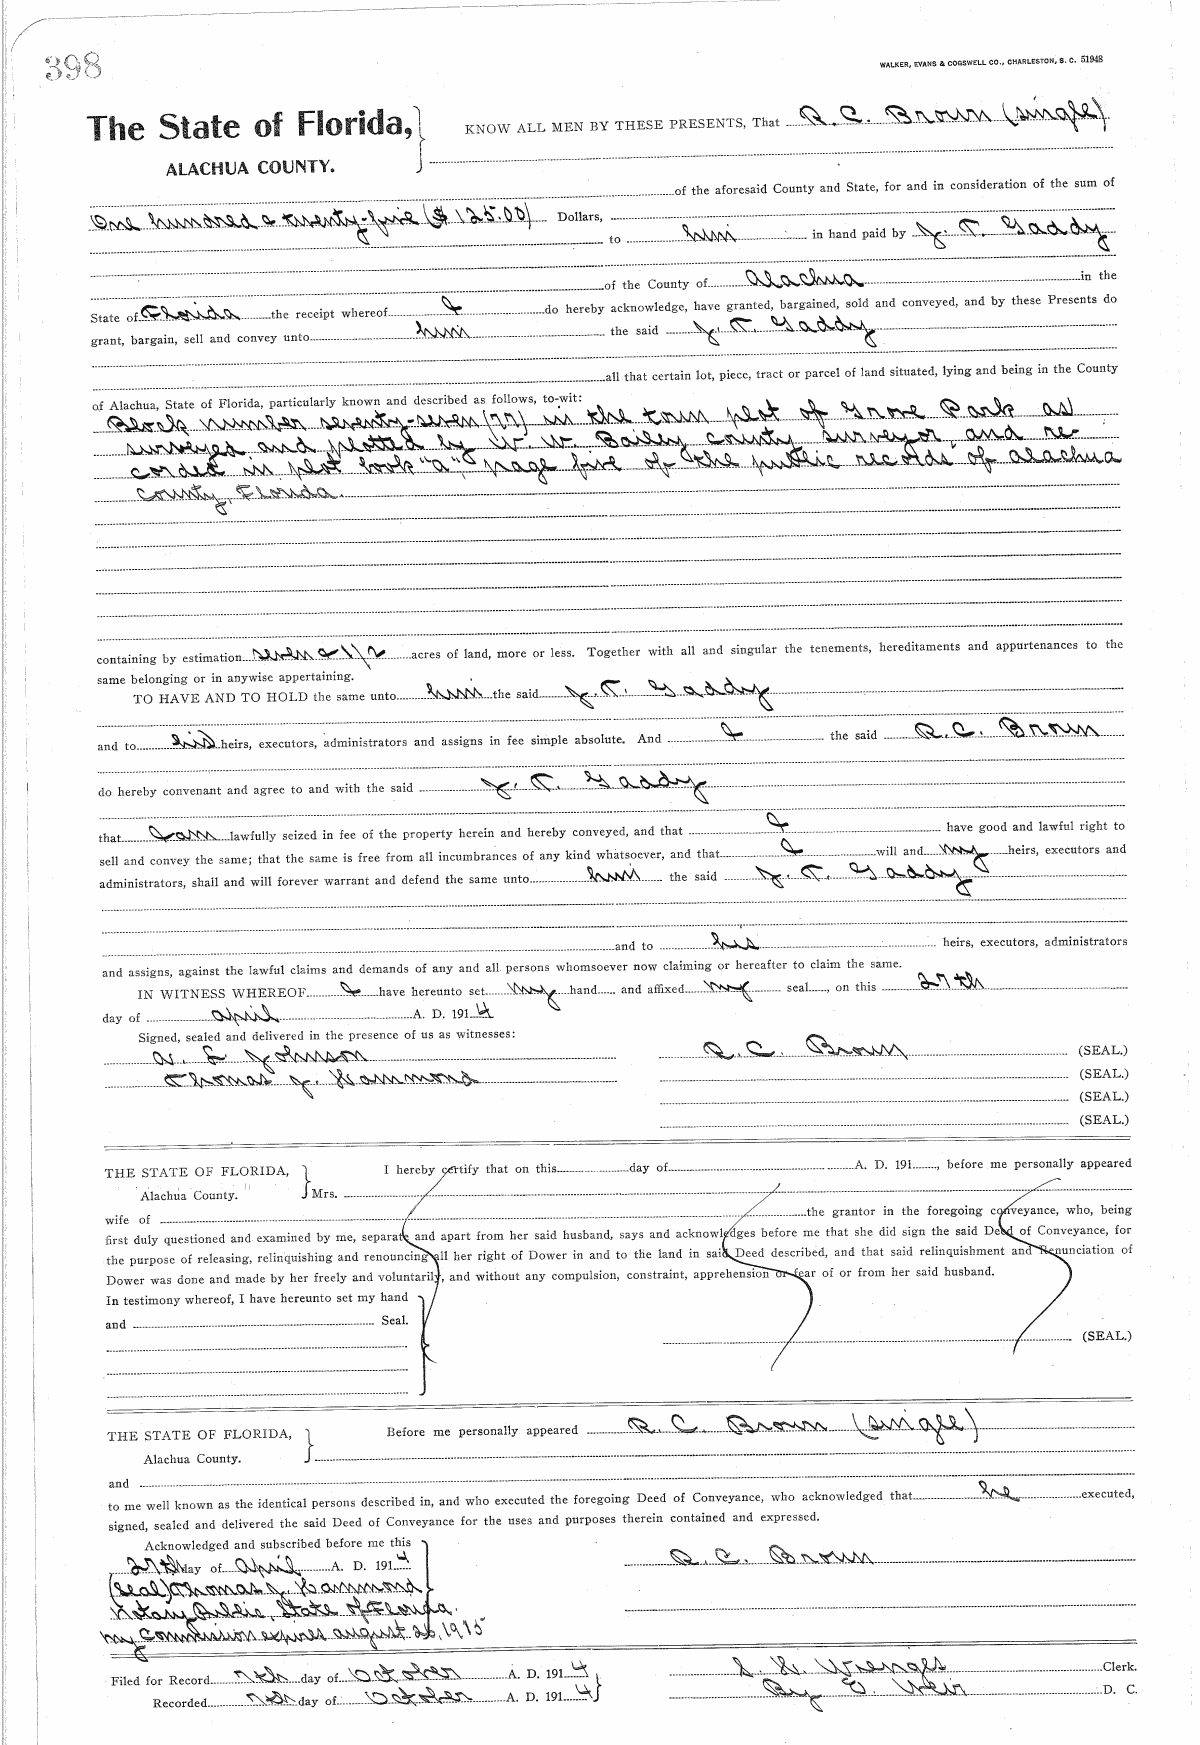 398
WALKER, EVANS & COGSWELL CO., CHARLESTON, S. C. 51948
The State of Florida,
ALACHUA COUNTY.
KNOW ALL MEN BY THESE PRESENTS, That R. C. Brown (single)
of the aforesaid County and State, for and in consideration of the sum of
One hundred & twenty-five ($125.00) Dollars,
to him in hand paid by J. T. Gaddy
of the County of Alachua in the
State of Florida the receipt whereof I do hereby acknowledge, have granted, bargained, sold and conveyed, and by these Presents do
grant, bargain, sell and convey unto him the said J. T. Gaddy
all that certain lot, piece, tract or parcel of land situated, lying and being in the County
of Alachua, State of Florida, particularly known and described as follows, to-wit:
Block number seventy-seven (77) in the town plot of Grove Park as
surveyed and plotted by W. W. Bailey county surveyor, and re-
corded in plot book "a", page five of the public records of Alachua
County, Florida.
containing by estimation seven & 1/2 acres of land, more or less. Together with all and singular the tenements, hereditaments and appurtenances to the
same belonging or in anywise appertaining.
TO HAVE AND TO HOLD the same unto him the said J. T. Gaddy
and to his heirs, executors, administrators and assigns in fee simple absolute. And I the said R. C. Brown
do hereby convenant and agree to and with the said J. T. Gaddy
that I am lawfully seized in fee of the property herein and hereby conveyed, and that I have good and lawful right to
sell and convey the same; that the same is free from all incumbrances of any kind whatsoever, and that I will and my heirs, executors and
administrators, shall and will forever warrant and defend the same unto him the said J. T. Gaddy
and to his heirs, executors, administrators
and assigns, against the lawful claims and demands of any and all persons whomsoever now claiming or hereafter to claim the same.
IN WITNESS WHEREOF I have hereunto set my hand and affixed my seal, on this 27th
day of April A. D. 1914
Signed, sealed and delivered in the presence of us as witnesses:
A. L. Johnson R. C. Brown (SEAL.)
Thomas J. Hammond (SEAL.)
(SEAL.)
(SEAL.)
THE STATE OF FLORIDA,
Alachua County.
I hereby certify that on this day of A. D. 191 , before me personally appeared
Mrs.
wife of the grantor in the foregoing conveyance, who, being
first duly questioned and examined by me, separate and apart from her said husband, says and acknowledges before me that she did sign the said Deed of Conveyance, for
the purpose of releasing, relinquishing and renouncing all her right of Dower in and to the land in said Deed described, and that said relinquishment and Renunciation of
Dower was done and made by her freely and voluntarily, and without any compulsion, constraint, apprehension or fear of or from her said husband.
In testimony whereof, I have hereunto set my hand
and Seal.
(SEAL.)
THE STATE OF FLORIDA,
Alachua County.
Before me personally appeared R. C. Brown (single)
and
to me well known as the identical persons described in, and who executed the foregoing Deed of Conveyance, who acknowledged that he executed,
signed, sealed and delivered the said Deed of Conveyance for the uses and purposes therein contained and expressed.
Acknowledged and subscribed before me this
27th day of April A. D. 1914 R. C. Brown
(Seal) Thomas J. Hammond
Notary Public, State of Florida.
My Commission expires August 26, 1915
Filed for Record 7th day of October A. D. 1914 S. H. Wienges Clerk.
Recorded 7th day of October A. D. 1914 By E. Weir D. C.